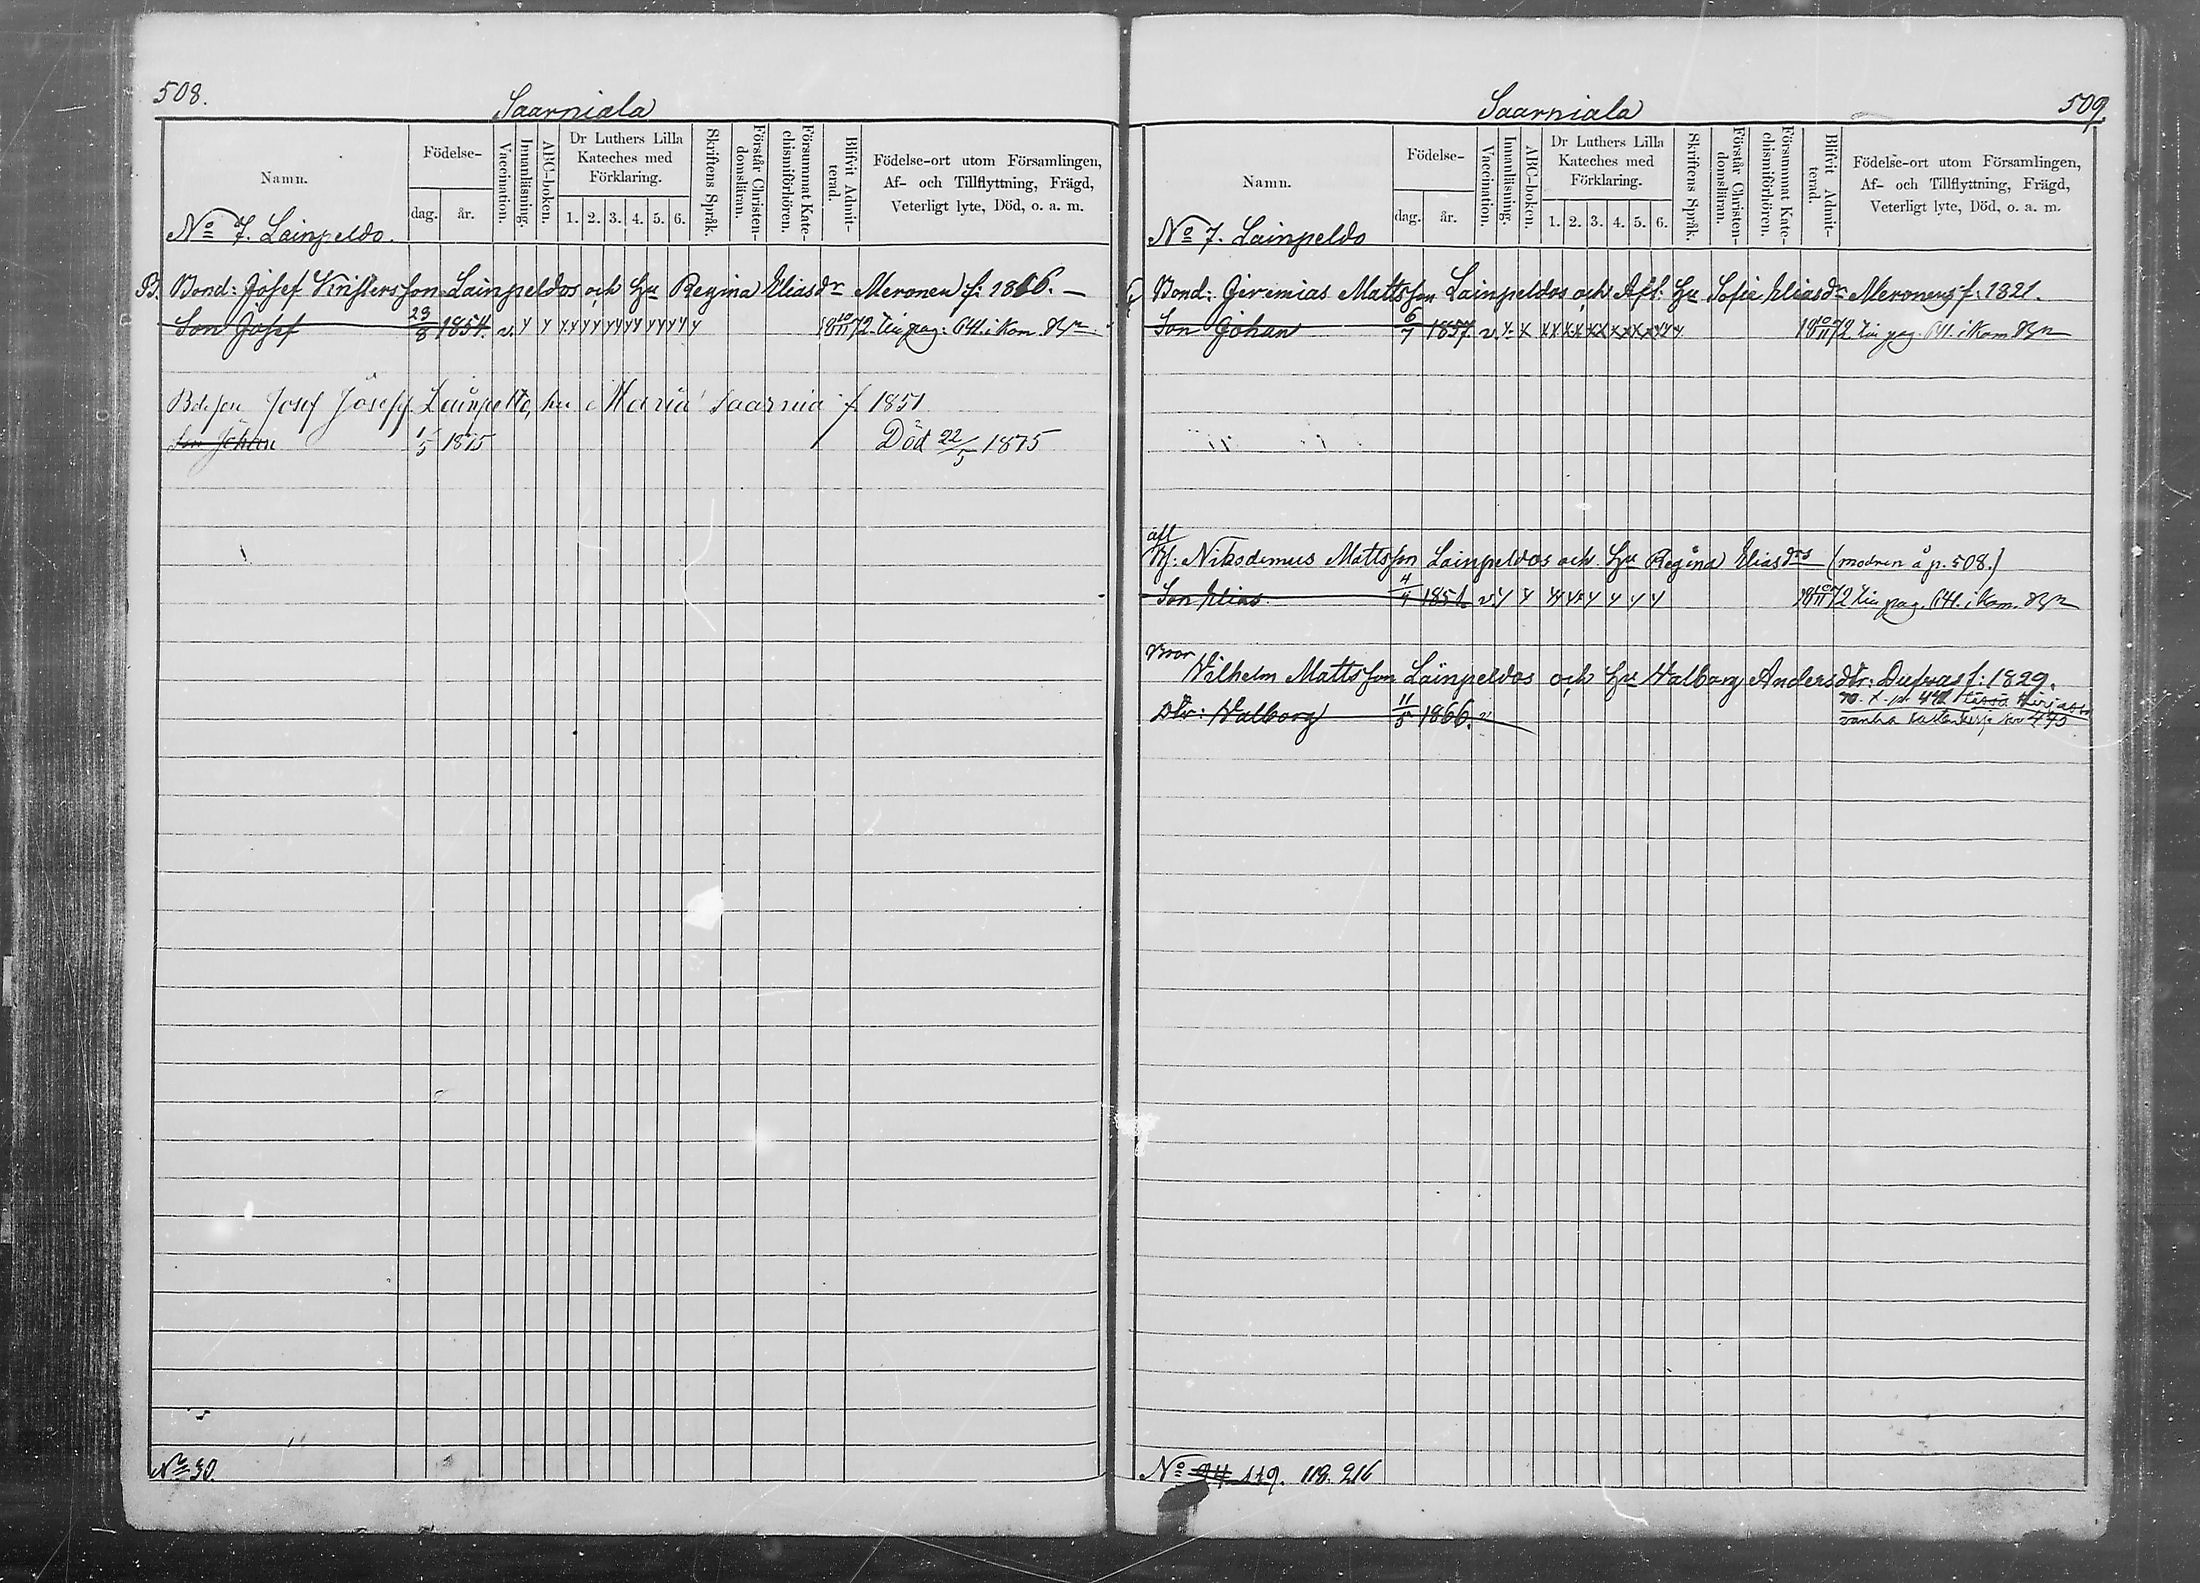 508.
Saarniala
Namn.
Födelse-
dag.
år.
Vaccination.
Innanläsning.
ABC-boken.
Dr Luthers Lilla
Kateches med
Förklaring.
1. 2. 3. 4. 5. 6.
Skriftens Språk.
Förstår Christen-
domsläran.
Försummat Kate-
chismiförhören.
Blifvit Admit-
terad.
Födelse-ort utom Församlingen,
Af- och Tillflyttning, Frägd,
Veterligt lyte, Död, o. a. m.
No 7. Lainpeldo.
B. Bond: Josef Lainpeldos och Hu Regina Eliasdr Meronen f: 1816. —
Son Josef 23/8 1854. v. 18 10/11 72 pag: 641. i Kom. Bn
Josef Josefs. Lainpelto, hu Maria Saarnia f. 1851
Son Johan 1/5 1875 Död 22/5 1875
No 30.
Saarniala
509.
Namn.
Födelse-
dag.
år.
Vaccination.
Innanläsning.
ABC-boken.
Dr Luthers Lilla
Kateches med
Förklaring.
1. 2. 3. 4. 5. 6.
Skriftens Språk.
Förstår Christen-
domsläran.
Försummat Kate-
chismiförhören.
Blifvit Admit-
terad.
Födelse-ort utom Församlingen,
Af- och Tillflyttning, Frägd,
Veterligt lyte, Död, o. a. m.
No 7. Lainpeldo
Bond: Jeremias Mattsson Lainpeldos och Afl: Hu Sofia Eliasdr Meronens f. 1821.
Son Johan 6/7 1857. v. 18 10/11 72 pag. 641. i Kom Bn
afl
Nikodemus Mattsson Lainpeldos och Hu Regina Eliasdrs (modren å p. 508.)
Son Elias. 4/4 1851. v. 18 10/11 72 pag. 641. i Kom. Bn
Bror
Wilhelm Mattsson Lainpeldos och Hu Walborg Andersdtr: f: 1829.
Dtr: Walborg 11/5 1866. v
tässä kirjassa
vanha 475
No 94 119. 118. 216